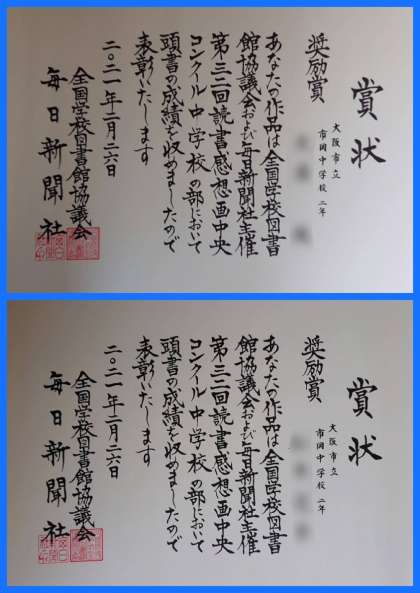 賞状
奨励賞
大阪市立
市岡中学校 二年
あなたの作品は全国学校図書
館協議会および毎日新聞社主催
第三二回読書感想画中央
コンクール中学校の部において
頭書の成績を収めましたので
表彰いたします
二〇二一年二月二六日
全国学校図書館協議会
毎日新聞社
賞状
奨励賞
大阪市立
市岡中学校 二年
あなたの作品は全国学校図書
館協議会および毎日新聞社主催
第三二回読書感想画中央
コンクール中学校の部において
頭書の成績を収めましたので
表彰いたします
二〇二一年二月二六日
全国学校図書館協議会
毎日新聞社